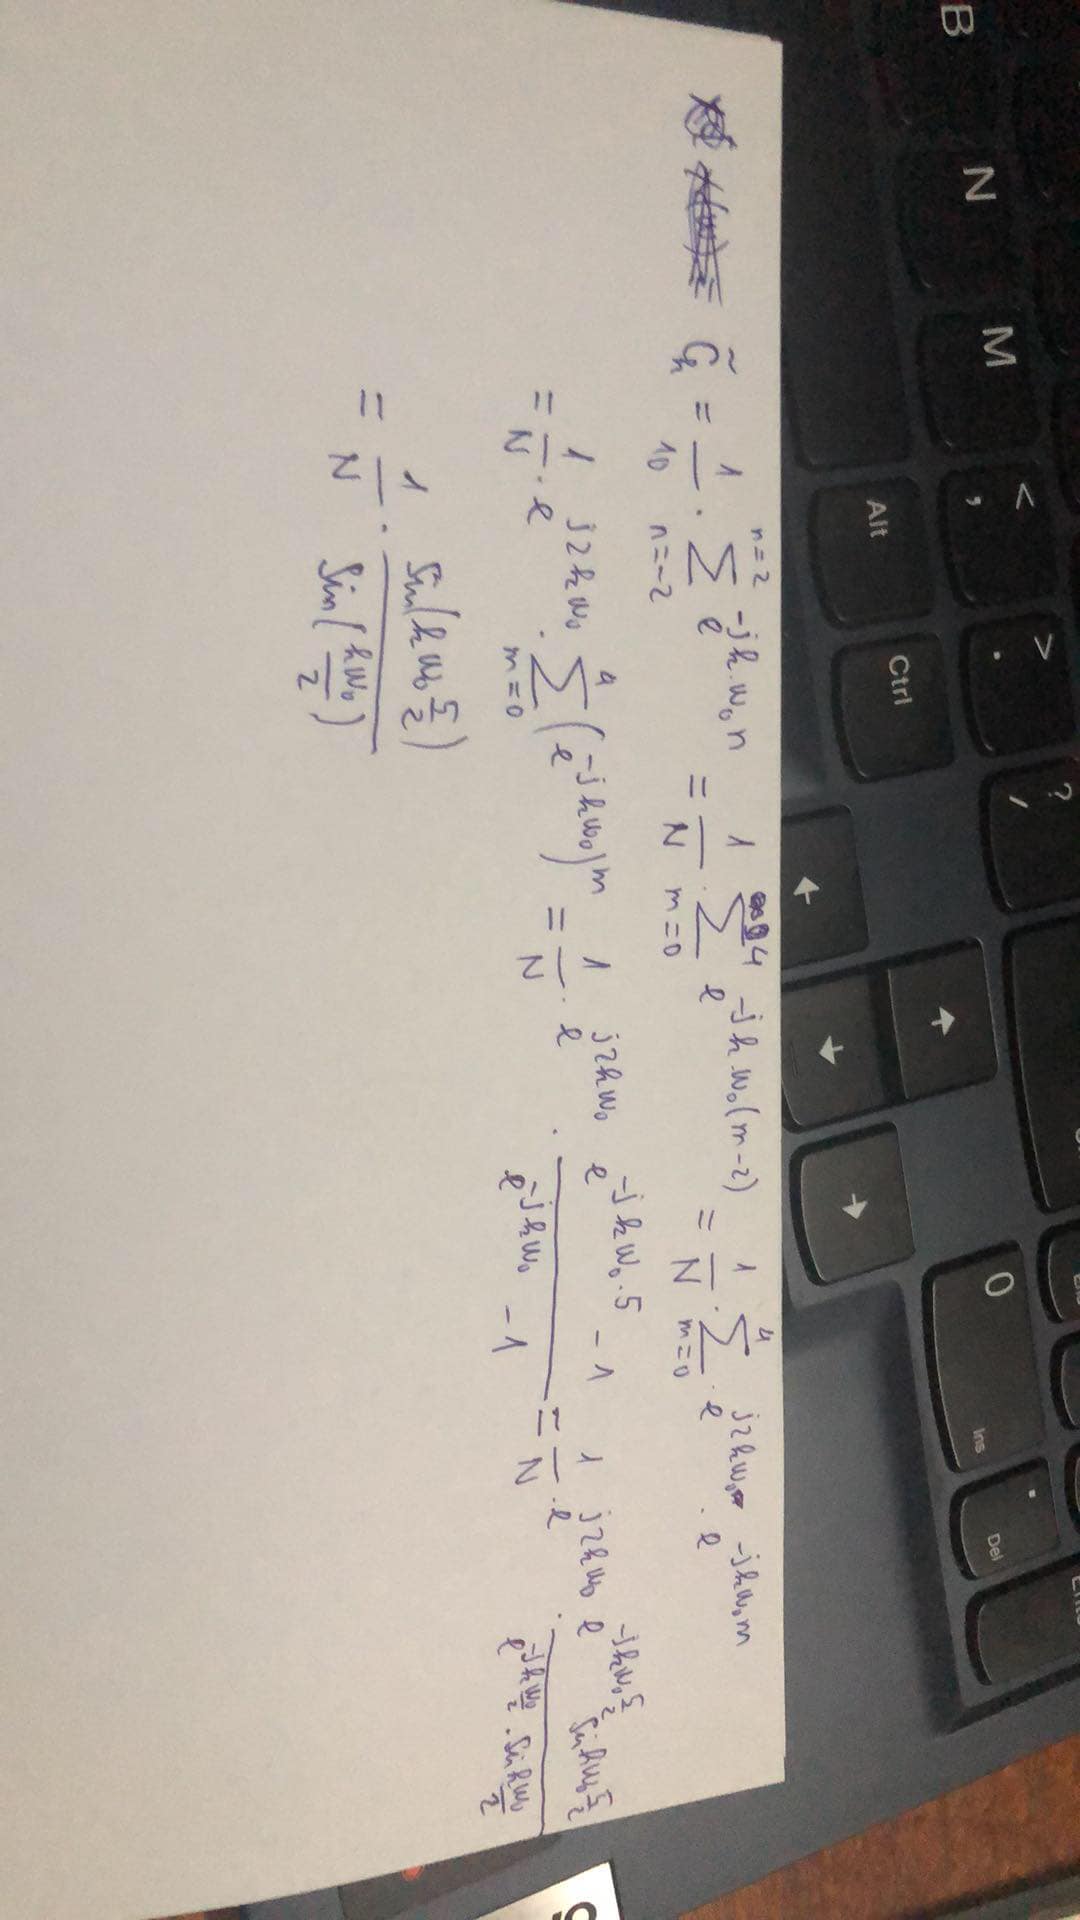 B N M < , > . ? /
0 Ins . Del
Alt Ctrl
C̃ₖ = 1/10 · Σ_{n=-2}^{n=2} e^{-jk·w₀n} = 1/N · Σ_{m=0}^{4} e^{-jk·w₀(m-2)} = 1/N · Σ_{m=0}^{4} · e^{j2kw₀} · e^{-jkw₀m}
= 1/N · e^{j2kw₀} · Σ_{m=0}^{4} (e^{-jkw₀})^m = 1/N · e^{j2kw₀} · (e^{-jkw₀·5} - 1)/(e^{-jkw₀} - 1) = 1/N · e^{j2kw₀} · (e^{-jkw₀5/2} sin kw₀5/2)/(e^{-jkw₀/2} · sin kw₀/2)
= 1/N · sin(kw₀5/2)/sin(kw₀/2)